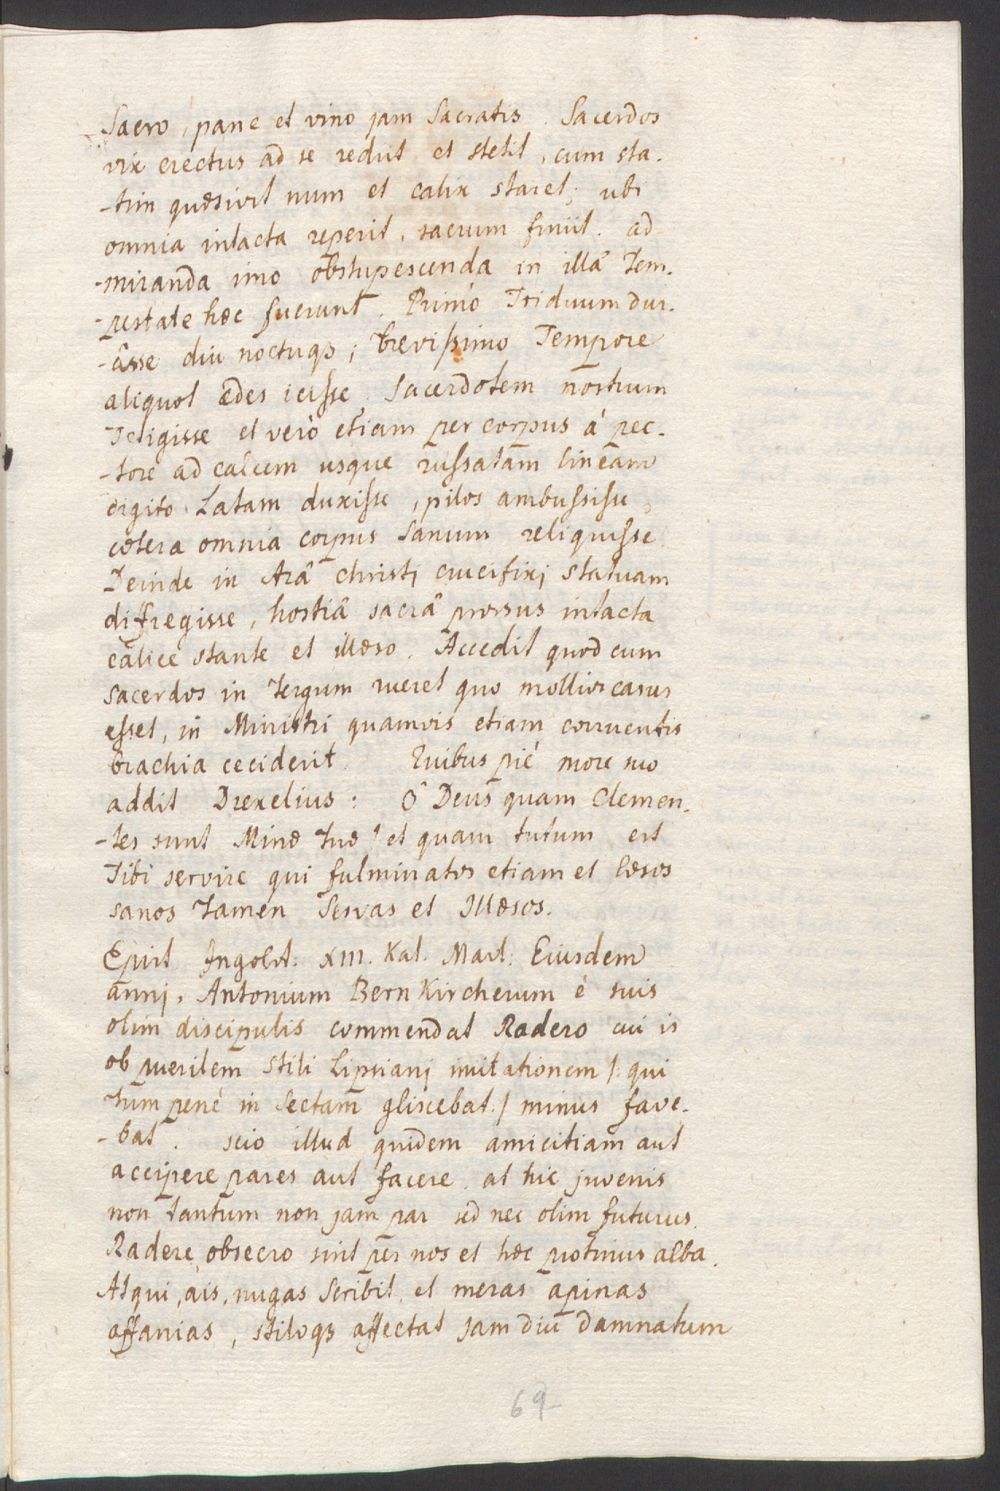 Sacro, pane et vino jam Sacratis. Sacerdos
vix erectus ad se rediit et stetit, cum sta-
-tim quæsivit num et calix staret; ubi
omnia intacta reperit, sacrum finiit. ad-
-miranda imo obstupescenda in illâ Tem-
-pestate hæc fuerunt. Primò Triduum dur-
-âsse diu noctuqs; brevissimo Tempore
aliquot ædes icisse. Sacerdotem nostrum
Tetigisse et verò etiam per corpus á pec-
-tore ad calcem usque russatam lineam
digito Latam duxisse, pilos ambussisse,
cætera omnia corpus Sanum reliquisse.
Deinde in Arâ Christi crucifixi Statuam
diffregisse, hostiâ sacrâ prorsus intacta
calice stante et illæso. Accedit quod cum
sacerdos in Tergum rueret quo mollior casus
esset, in Ministri quamvis etiam corruentis
brachia ceciderit. Quibus piè more suo
addit Drexelius: Ô Deus quam Clemen-
-tes sunt Minæ Tuæ! et quam tutum est
Tibi servire qui fulminatos etiam et læsos
sanos Tamen Servas et Illæsos.
Epist Ingolst: XIII. Kal. Mart: Eiusdem
anni, Antonium Bern Kircherum è suis
olim discipulis commendat Radero cui is
ob puerilem Stili Lipsiani imitationem /: qui
Tum penè in Sectam gliscebat :/ minus fave-
-bat. scio illud quidem amicitiam aut
accipere pares aut facere. at hic juvenis
non tantum non jam par sed nec olim futurus.
Radere, obsecro sint per nos et hæc protinus alba.
Atqui, ais, nugas Scribit, et meras apinas
affanias, stiloqs affectat jam diu damnatum
69